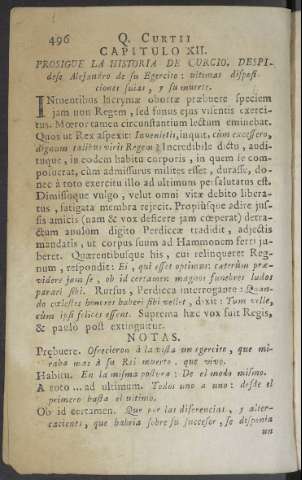 496 Q. CURTII
CAPITULO XII.
PROSIGUE LA HISTORIA DE CURCIO. DESPI-
dese Alejandro de su Egercito: ultimas disposi-
ciones suias, y su muerte.
INtuentibus lacrymæ obortæ præbuere speciem
jam non Regem, sed funus ejus visentis exerci-
tus. Mœror tamen circumstantium lectum eminebat.
Quos ut Rex aspexit: Invenietis, inquit, cùm excessero,
dignum talibus viris Regem? Incredibile dictu, audi-
tuque, in eodem habitu corporis, in quem se com-
posuerat, cùm admissurus milites esset, durasse, do-
nec à toto exercitu illo ad ultimum persalutatus est.
Dimissoque vulgo, velut omni vitæ debito libera-
tus, fatigata membra rejecit. Propiùsque adire jus-
sis amicis (nam & vox deficere jam cœperat) detra-
ctum anulum digito Perdiccæ tradidit, adjectis
mandatis, ut corpus suum ad Hammonem ferri ju-
beret. Quærentibusque his, cui relinqueret Reg-
num, respondit: Ei, qui esset optimus: cæterùm præ-
videre jam se, ob id certamen magnos funebres ludos
parari sibi. Rursus, Perdicca interrogante: Quan-
do cælestes honores haberi sibi vellet, dixit: Tum velle,
cùm ipsi felices essent. Suprema hæc vox fuit Regis,
& paulo post extinguitur.
NOTAS.
Præbuere. Ofrecieron à la vista un egercito, que mi-
raba mas à su Rei muerto, que vivo.
Habitu. En la misma postura: De el modo mismo.
A toto ... ad ultimum. Todos uno a uno: desde el
primero hasta el ultimo.
Ob id certamen. Que por las diferencias, y alter-
caciones, que habria sobre su succesor, se disponia
un